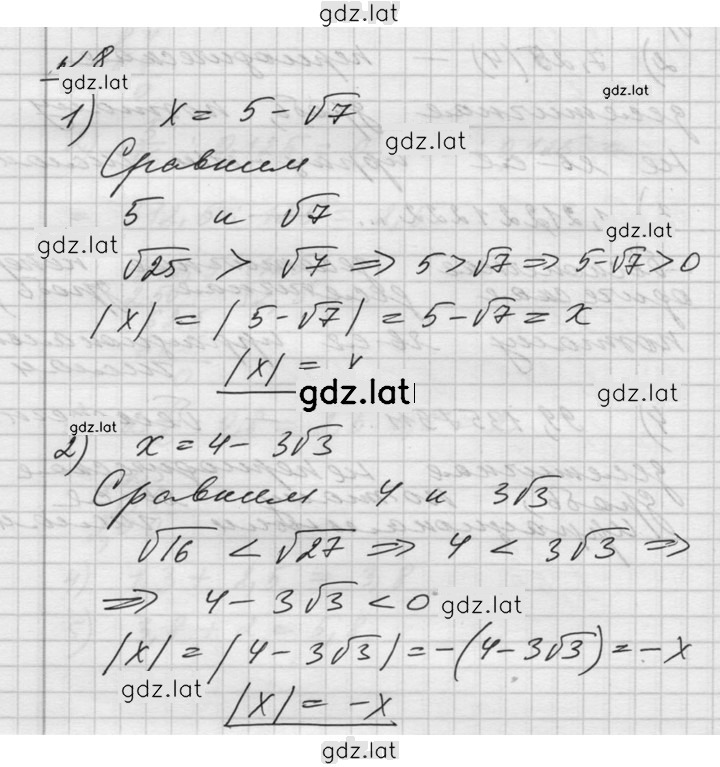 gdz.lat
№8
gdz.lat
gdz.lat
1) x = 5 - √7
gdz.lat
Сравним
5 и √7
gdz.lat
gdz.lat
√25 > √7 ⇒ 5 > √7 ⇒ 5 - √7 > 0
|x| = |5 - √7| = 5 - √7 = x
|x| = x
gdz.lat
gdz.lat
gdz.lat
2) x = 4 - 3√3
Сравним 4 и 3√3
√16 < √27 ⇒ 4 < 3√3 ⇒
⇒ 4 - 3√3 < 0
gdz.lat
|x| = |4 - 3√3| = -(4 - 3√3) = -x
gdz.lat
|x| = -x
gdz.lat